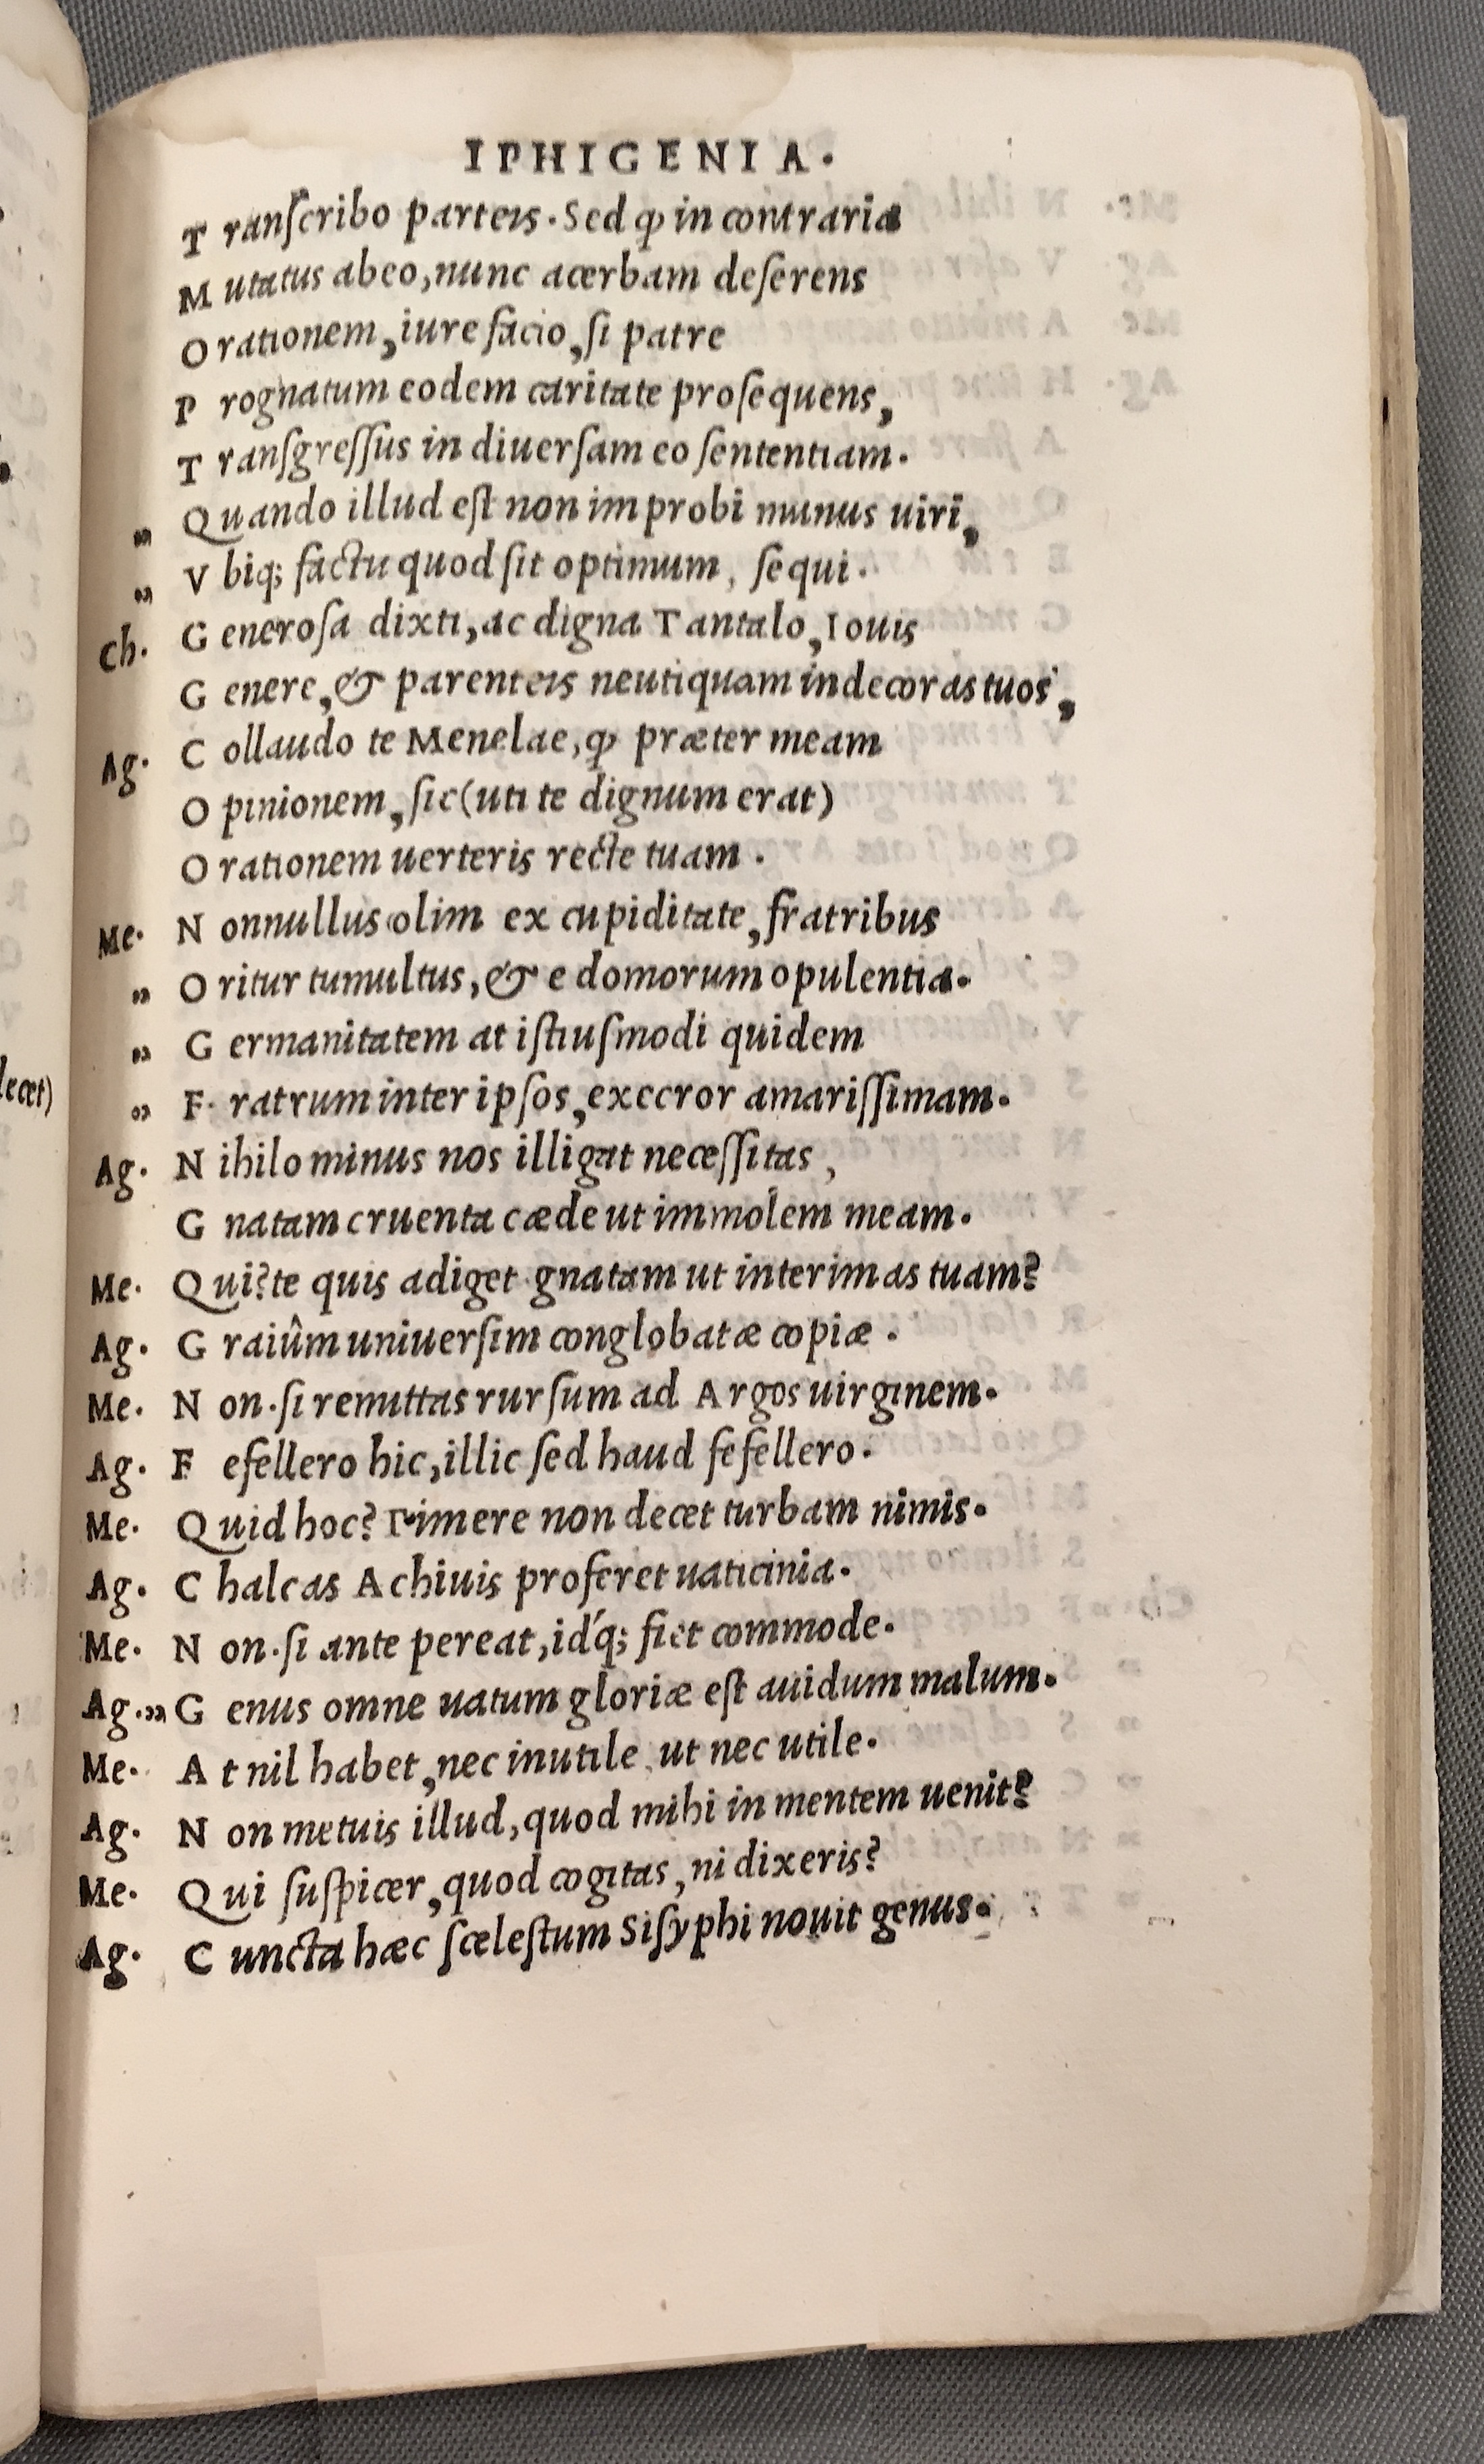 IPHIGENIA.
Tranſcribo parteis. Sed ꝙ in contraria
Mutatus abeo, nunc acerbam deſerens
Orationem, iure facio, ſi patre
Prognatum eodem caritate proſequens,
Tranſgreſſus in diuerſam eo ſententiam.
„ Quando illud eſt non improbi munus uiri,
„ Vbiq; factu quod ſit optimum, ſequi.
Ch. Generoſa dixti, ac digna Tantalo, Iouis
Genere, & parenteis neutiquam indecoras tuos,
Ag. Collaudo te Menelae, ꝙ præter meam
Opinionem, ſic (uti te dignum erat)
Orationem uerteris recte tuam.
Me. Nonnullus olim ex cupiditate, fratribus
„ Oritur tumultus, & e domorum opulentia.
„ Germanitatem at iſtiuſmodi quidem
„ Fratrum inter ipſos, execror amariſſimam.
Ag. Nihilo minus nos illigat neceſſitas,
Gnatam cruenta cæde ut immolem meam.
Me. Qui? te quis adiget gnatam ut interimas tuam?
Ag. Graiûm uniuerſim conglobatæ copiæ.
Me. Non. ſi remittas rurſum ad Argos uirginem.
Ag. Fefellero hic, illic ſed haud fefellero.
Me. Quid hoc? Timere non decet turbam nimis.
Ag. Chalcas Achiuis proferet uaticinia.
Me. Non. ſi ante pereat, id́q; fiet commode.
Ag. „ Genus omne uatum gloriæ eſt auidum malum.
Me. At nil habet, nec inutile, ut nec utile.
Ag. Non metuis illud, quod mihi in mentem uenit?
Me. Qui ſuſpicer, quod cogitas, ni dixeris?
Ag. Cuncta hæc ſceleſtum Siſyphi nouit genus.
decet)